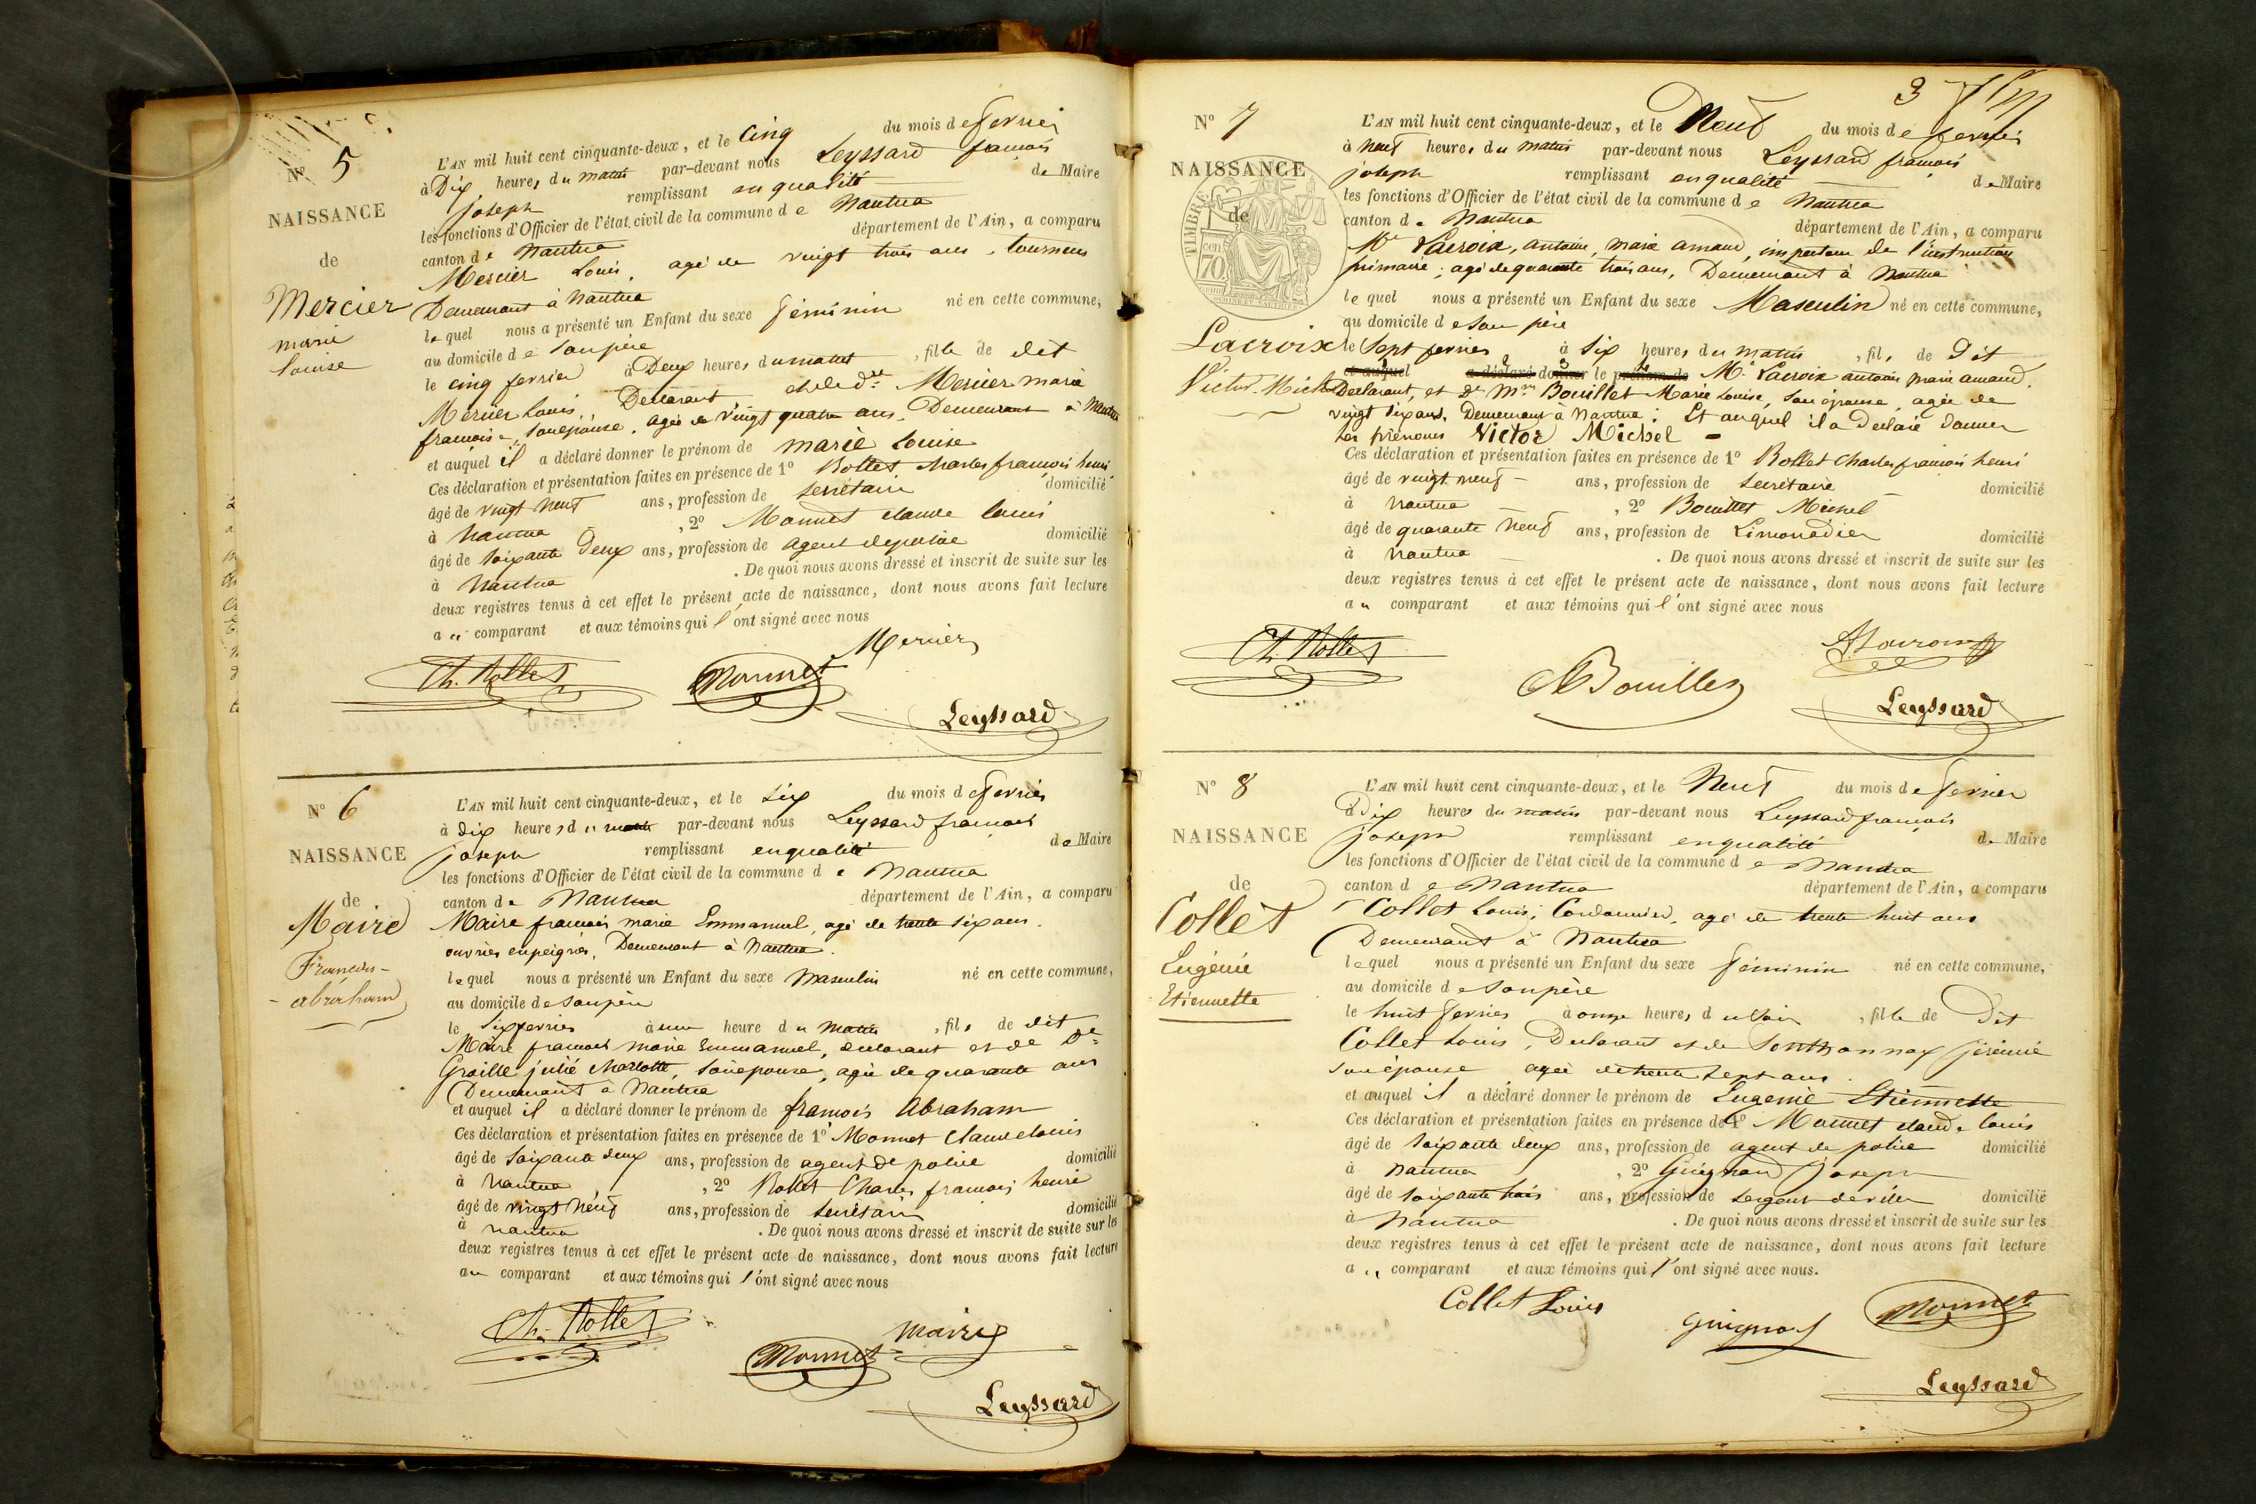 N° 5
NAISSANCE
de
Mercier
marie
louise
L'AN mil huit cent cinquante-deux, et le Cinq du mois de fevrier
à Dix heures du matin par-devant nous Leyssard françois
joseph remplissant en qualité de Maire
les fonctions d'Officier de l'état civil de la commune de Nantua
canton de Nantua département de l'Ain, a comparu
Mercier Louis, agé de vingt trois ans, tourneur
Demeurant à Nantua
lequel nous a présenté un Enfant du sexe féminin né en cette commune,
au domicile de son père
le cinq fevrier à Deux heures du matin, fille de dit
Mercier Louis, Déclarant et de dlle Mercier marie
françoise, son épouse, agée de vingt quatre ans, Demeurant à Nantua
et auquel il a déclaré donner le prénom de marie louise
Ces déclaration et présentation faites en présence de 1° Rollet charles françois henri
âgé de vingt neuf ans, profession de secrétaire domicilié
à Nantua, 2° Monnet claude louis
âgé de soixante Deux ans, profession de agent de police domicilié
à Nantua. De quoi nous avons dressé et inscrit de suite sur les
deux registres tenus à cet effet le présent acte de naissance, dont nous avons fait lecture
au comparant et aux témoins qui l'ont signé avec nous
Mercier
Ch. Rollet Monnet
Leyssard
N° 6
NAISSANCE
de
Maire
François-
-abraham
L'AN mil huit cent cinquante-deux, et le six du mois de fevrier
à dix heures du matin par-devant nous Leyssard françois
joseph remplissant en qualité de Maire
les fonctions d'Officier de l'état civil de la commune de Nantua
canton de Nantua département de l'Ain, a comparu
Maire françois marie Emmanuel, agé de trente six ans.
ouvrier en peignes, Demeurant à Nantua.
lequel nous a présenté un Enfant du sexe Masculin né en cette commune,
au domicile de son père
le six fevrier à une heure du matin, fils de dit
Maire françois marie Emmanuel, déclarant et de De
Graille julie charlotte, son épouse, agée de quarante ans
Demeurant à Nantua
et auquel il a déclaré donner le prénom de françois Abraham
Ces déclaration et présentation faites en présence de 1° Monnet claude louis
âgé de soixante deux ans, profession de agent de police domicilié
à Nantua, 2° Rollet Charles françois henri
âgé de vingt neuf ans, profession de secrétaire domicilié
à nantua. De quoi nous avons dressé et inscrit de suite sur les
deux registres tenus à cet effet le présent acte de naissance, dont nous avons fait lecture
au comparant et aux témoins qui l'ont signé avec nous
Ch. Rollet Maire
Monnet
Leyssard
3
N° 7
NAISSANCE
de
TIMBRE
70
Lacroix
Victor-Michel
L'AN mil huit cent cinquante-deux, et le Neuf du mois de fevrier
à neuf heures du matin par-devant nous Leyssard françois
joseph remplissant en qualité de Maire
les fonctions d'Officier de l'état civil de la commune de Nantua
canton de Nantua département de l'Ain, a comparu
Mr Lacroix, antoine, marie amand, inspecteur de l'instruction
primaire; agé de quarante trois ans, Demeurant à Nantua
lequel nous a présenté un Enfant du sexe Masculin né en cette commune,
au domicile de son père
le sept fevrier à six heures du matin, fils de Dit
et auquel a déclaré donner le prénom de Mr Lacroix antoine marie amand.
Declarant, et de Mme Bouillet Marie Louise, son épouse, agée de
vingt six ans, Demeurant à Nantua; Et auquel il a Déclaré donner
les prénoms Victor Michel -
Ces déclaration et présentation faites en présence de 1° Rollet Charles françois henri
âgé de vingt neuf - ans, profession de secrétaire domicilié
à Nantua, 2° Bouillet Michel
âgé de quarante neuf ans, profession de Limonadier domicilié
à Nantua. De quoi nous avons dressé et inscrit de suite sur les
deux registres tenus à cet effet le présent acte de naissance, dont nous avons fait lecture
au comparant et aux témoins qui l'ont signé avec nous
Ch. Rollet ALacroix
Bouillet
Leyssard
N° 8
NAISSANCE
de
Collet
Eugénie
Etiennette
L'AN mil huit cent cinquante-deux, et le Neuf du mois de fevrier
à Dix heures du matin par-devant nous Leyssard françois
joseph remplissant en qualité de Maire
les fonctions d'Officier de l'état civil de la commune de Nantua
canton de Nantua département de l'Ain, a comparu
Collet Louis, Cordonnier, agé de trente huit ans
Demeurant à Nantua
lequel nous a présenté un Enfant du sexe féminin né en cette commune,
au domicile de son père
le huit fevrier à onze heures du soir, fille de Dit
Collet Louis, Declarant et de Sonthonnax
son épouse agée de trente sept ans.
et auquel il a déclaré donner le prénom de Eugénie Etiennette
Ces déclaration et présentation faites en présence de 1° Monnet claude louis
âgé de soixante deux ans, profession de agent de police domicilié
à Nantua, 2° Guignard joseph
âgé de soixante trois ans, profession de sergent de ville domicilié
à Nantua. De quoi nous avons dressé et inscrit de suite sur les
deux registres tenus à cet effet le présent acte de naissance, dont nous avons fait lecture
au comparant et aux témoins qui l'ont signé avec nous.
Collet Louis Monnet
Leyssard